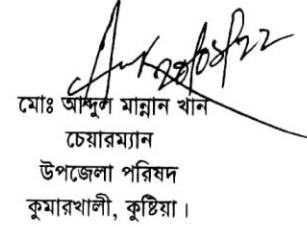 ২০/০৬/২২
মোঃ আব্দুল মান্নান খান
চেয়ারম্যান
উপজেলা পরিষদ
কুমারখালী, কুষ্টিয়া।